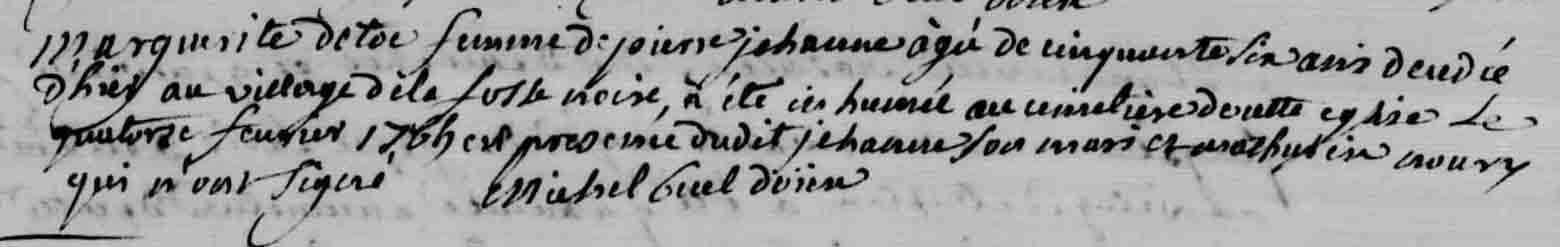 Marguerite detoc femme de pierre jehanne âgé de cinquante six ans decedié
d'hier au village de la fosse noire, à été inhumé au cimetière de cette eglise Le
quatorze fevrier 176h en presence dudit jehanne son mari et mathurin noury
qui n'ont signé Michel Guel doien